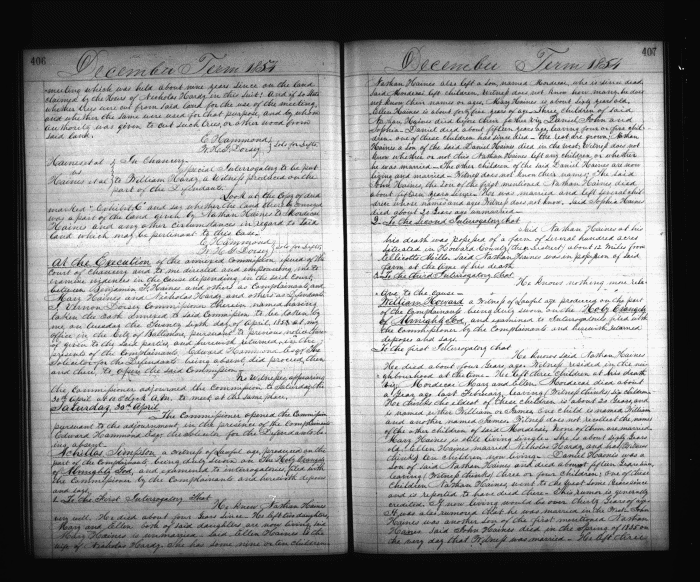 406
December Term 1854
meeting which was held about nine years since on the land
claimed by the heirs of Nicholas Hardy in this suit? And if so state
whether fires were cut from said land for the use of the meeting,
and whether the same were used for that purpose, and by whom
authority was given to cut such fires, or other wood from
said land.
C Hammond
Th. B Dorsey } Sols for Defts
Haines et al } In Chancery
vs Special Interrogatory to be put
Haines et al } to William Hardy, a Witness produced on the
part of the Defendants
Look at the Copy of deed
marked "Exhibit C" and say whether the land there conveyed
was a part of the land given by Nathan Haines to Mordecai
Haines and any other circumstances in regard to said
land which may be pertinent to this case
C Hammond
Th. B Dorsey } Sols for Defts
At the Execution of the annexed Commission issued of the
Court of Chancery and to me directed and empowering me to
examine evidence in the cause depending in the said court,
between Benjamin F. Haines and others as Complainants, and
Mary Haines and Nicholas Hardy and others as Defendants
I Vernon Dorsey Commissioner therein named having
taken the oath annexed to said Commission to be taken by
me on Tuesday the day of April 1853 at my
office in the City of Baltimore pursuant to previous notice
given to the said parties, and herewith returned, in the
presence of the Complainants Edward Hammond Esqr the
Solicitor for the Defendants being absent, did proceed then
and there, to open the said Commission
No Witnesses appearing
the Commissioner adjourned the Commission to Saturday the
30th April at o'clock A.M. to meet at the same place.
Saturday 30th April
The Commissioner opened the Commission
pursuant to the adjournment in the presence of the Complainants
Edward Hammond Esqr the Solicitor for the Defendants be-
ing absent.
Achilles Simpson, a witness of lawful age, produced on the
part of the Complainants, being duly sworn on the Holy Evangely
of Almighty God, and examined to interrogatories filed with
the Commission by the Complainants and herewith deposes
and says
To the First Interrogatory that
He knew Nathan Haines
very well. He died about four years since. He left two daughters
Mary and Ellen, both of said daughters are now living, said
Mary Haines is unmarried — said Ellen Haines is the
wife of Nicholas Hardy. She has some nine or ten children
407
December Term 1854
Nathan Haines also left a son, named Mordecai, who is since dead,
said Mordecai left children, Witness don't know how many, he does
not know their names or ages. Mary Haines is about sixty years old,
Ellen Haines is about forty five years of age. Three children of said
Nathan Haines died before their father viz Daniel John and
Sophia — Daniel died about fifteen years ago, leaving four or five chil-
dren — one of these children has since died — the rest are grown. Nathan
Haines a son of the said Daniel Haines died in the west. Witness does not
know whether or not this Nathan Haines left any children, or whether
he was married — The other children of the said Daniel Haines are now
living and married — Witness does not know their names. The said
John Haines, the son of the first mentioned Nathan Haines died
about fifteen years since. He was married, and left several chil-
dren whose names and ages Witness does not know. Said Sophia Haines
died about 20 years ago unmarried —
2. To the Second Interrogatory that
Said Nathan Haines at his
his death was possessed of a farm of several hundred acres
situated in Howard County (then District) about 12 miles from
Ellicotts Mills. Said Nathan Haines was in possession of said
farm at the time of his death
3. To the third Interrogatory that
He knows nothing more rela-
tive to the cause —
William Howard a Witness of lawful age produced on the part
of the Complainants being duly sworn on the Holy Evangely
of Almighty God, and examined to Interrogatories filed with
the Commissioner by the Complainants and herewith returned
deposes and says
To the first Interrogatory that
He knew said Nathan Haines
He died about four years ago. Witness resided in the nei-
ghbourhood at the time. — He left three children at his death
viz Mordecai Mary and Ellen. Mordecai died about
a year ago last February, leaving Witness thinks six children.
He thinks the eldest of these children is about 21 years, and
is named either William or James, one child is named William
and another named James. Witness does not recollect the names of
the other children of said Mordecai. None of them are married.
Mary Haines is still living single. She is about sixty years
old. Ellen Haines married Nicholas Hardy, and has Witness
thinks ten children now living — Daniel Haines was a
son of said Nathan Haines and died about fifteen years since,
leaving (Witness thinks) three or four children; one of these
children Nathan Haines went to the Great West some years since
and is reported to have died there. This rumor is generally
credited. If now living he would be over thirty years of age.
It was also rumored that he was married in the West. John
Haines was another son of the first mentioned Nathan
Haines. Said John Haines died in the spring of 1835 on
the very day that Witness was married — He left three